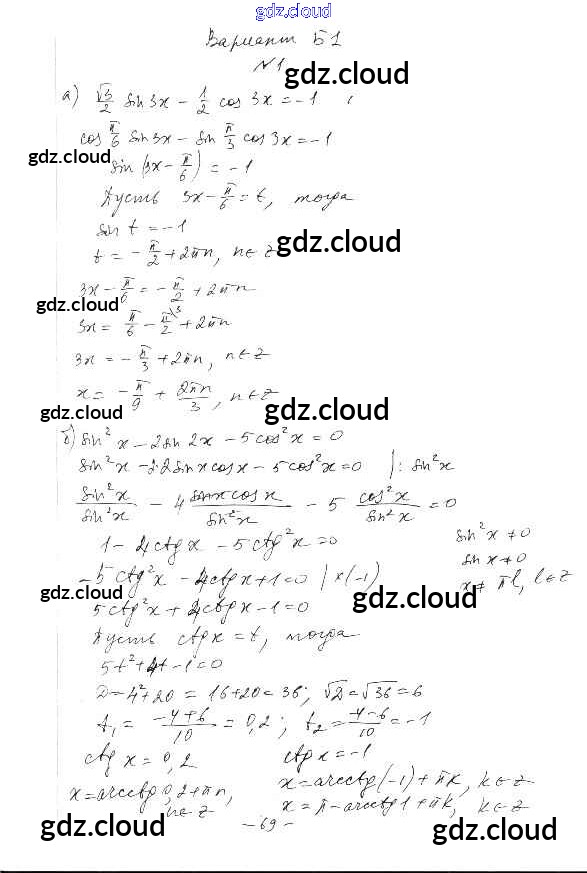 gdz.cloud
Вариант Б1
№1
gdz.cloud
а) √3/2 sin 3x − 1/2 cos 3x = −1
cos π/6 sin 3x − sin π/3 cos 3x = −1
gdz.cloud
sin (3x − π/6) = −1
gdz.cloud
Пусть 3x − π/6 = t, тогда
sin t = −1
t = −π/2 + 2πn, n ∈ Z
gdz.cloud
3x − π/6 = −π/2 + 2πn
gdz.cloud
3x = π/6 − π/2 \3 + 2πn
3x = −π/3 + 2πn, n ∈ Z
x = −π/9 + 2πn/3, n ∈ Z
gdz.cloud
б) sin² x − 2 sin 2x − 5 cos² x = 0
gdz.cloud
sin² x − 2·2 sin x cos x − 5 cos² x = 0 | : sin² x
sin² x/sin² x − 4 sin x cos x/sin² x − 5 cos² x/sin² x = 0
gdz.cloud
1 − 4 ctg x − 5 ctg² x = 0
sin² x ≠ 0
sin x ≠ 0
x ≠ πl, l ∈ Z
−5 ctg² x − 4 ctg x + 1 = 0 | × (−1)
gdz.cloud
gdz.cloud
5 ctg² x + 4 ctg x − 1 = 0
Пусть ctg x = t, тогда
5t² + 4t − 1 = 0
D = 4² + 20 = 16 + 20 = 36; √D = √36 = 6
t₁ = −4+6/10 = 0,2; t₂ = −4−6/10 = −1
gdz.cloud
gdz.cloud
ctg x = 0,2
ctg x = −1
x = arcctg 0,2 + πn, n ∈ Z
x = arcctg (−1) + πk, k ∈ Z
x = π − arcctg 1 + πk, k ∈ Z
− 69 −
gdz.cloud
gdz.cloud